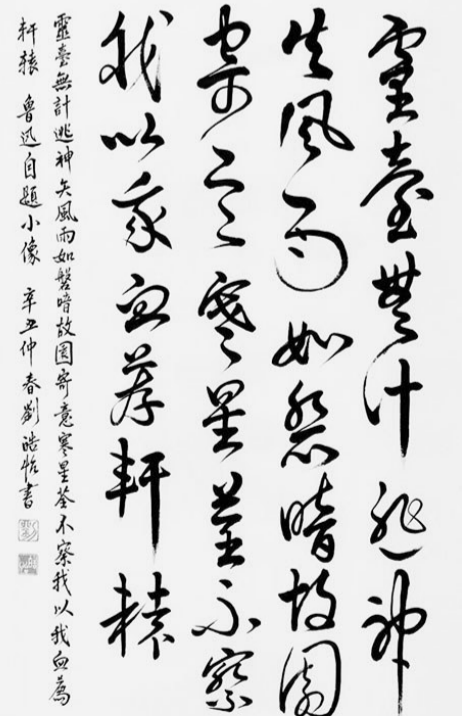 靈臺無計逃神
矢風雨如磐暗故園
寄意寒星荃不察
我以我血薦軒轅
靈臺無計逃神矢風雨如磐暗故園寄意寒星荃不察我以我血薦
軒轅 魯迅自題小像 辛丑仲春劉皓怡書